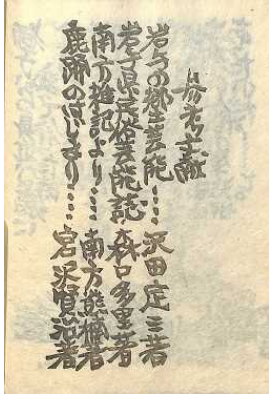 参考文献
岩手の郷土芸能……沢田定三著
岩手県民俗芸能誌…森口多里著
南方雑記より……南方熊楠著
鹿踊のはじまり……宮沢賢治著